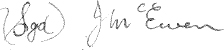 (Sgd) J McEwen